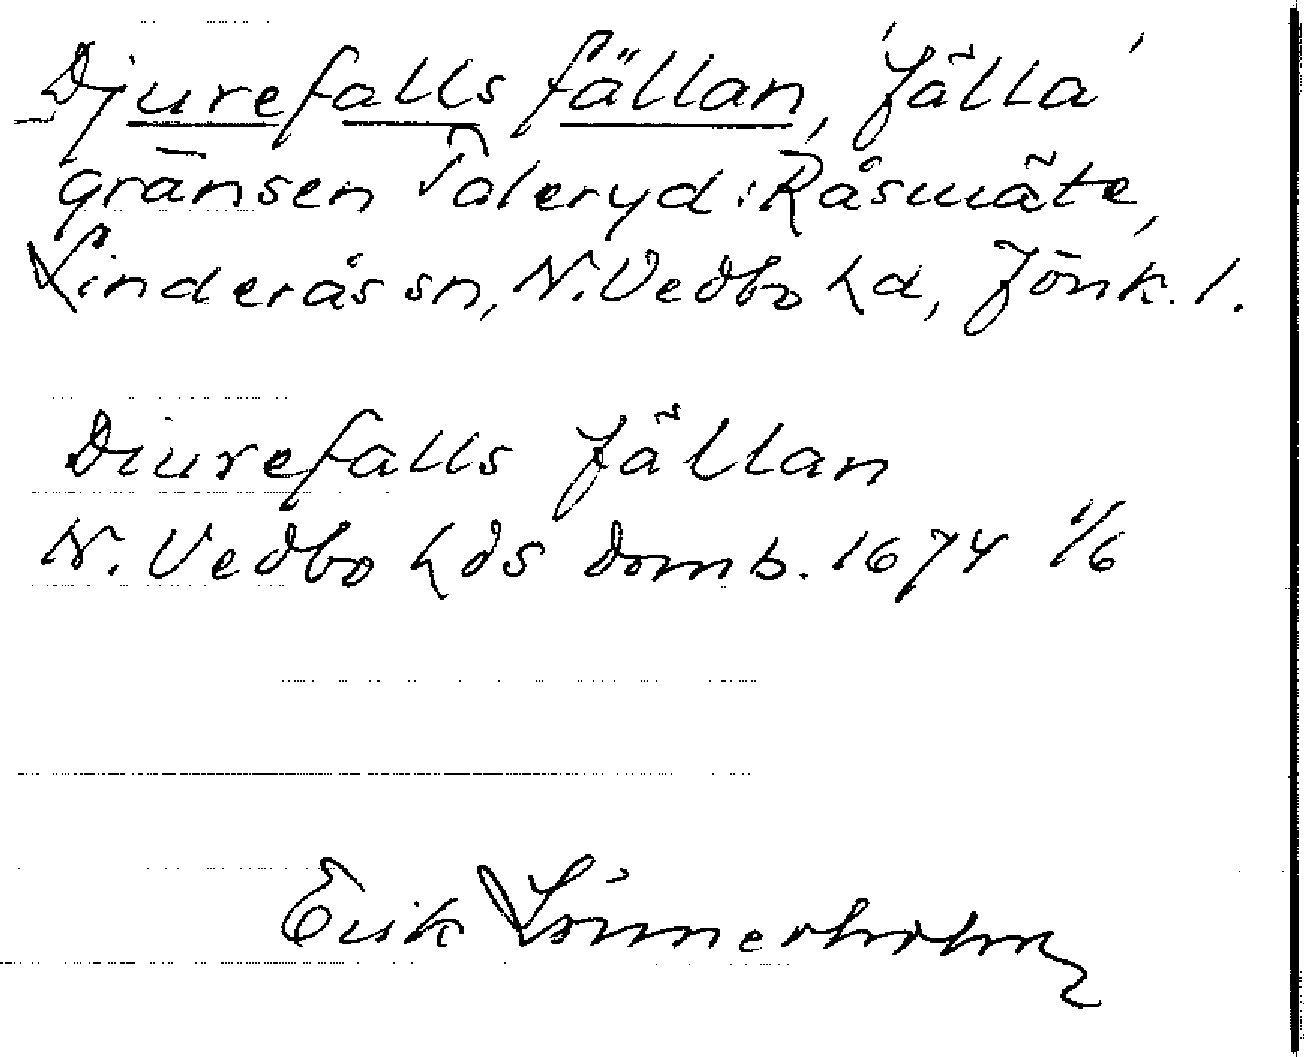 Djurefalls fällan, 'fälla'
gränsen Valeryd: Råsmäte,
Linderås sn, N. Vedbo hd, Jönk. l.
Diurefalls fällan
N. Vedbo hds domb. 1674 1/6
Erik Lönnerholm